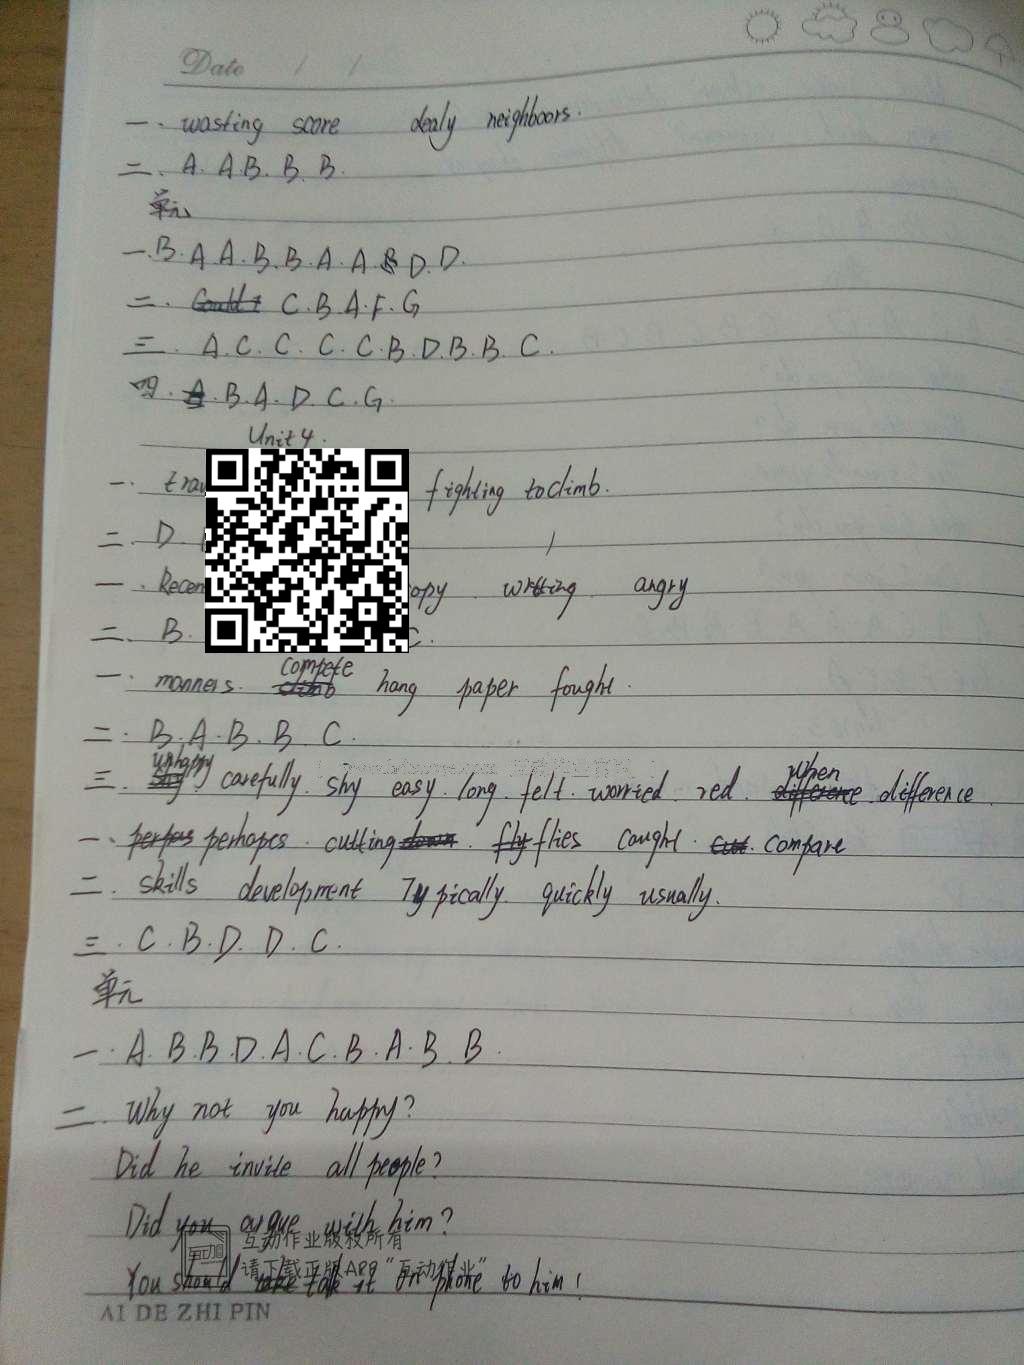 Date / /
一. wasting score dealy neighboors.
二. A. A B. B. B.
单元
一. B. A A. B. B. A. A. B D. D.
二. C. B. A. F. G
三. A. C. C. C. C. B. D. B. B. C.
四. B. A. D. C. G.
Unit 4.
一. fighting toclimb.
二. D
一. writting. angry
二. B. C.
一. manners. compete hang paper fought.
二. B. A. B. B. C.
三. unhappy carefully. shy easy. long. felt. worried. red. when difference.
一. perhapes. cutting flies caught. compare
二. skills development Typically. quickly usually.
三. C. B. D. D. C.
单元
一. A. B. B. D. A. C. B. A. B. B.
二. Why not you happy?
Did he invite all people?
Did you argue with him?
互动作业版权所有
请下载正版APP“互动作业”
You should talk it on phone to him!
AI DE ZHI PIN